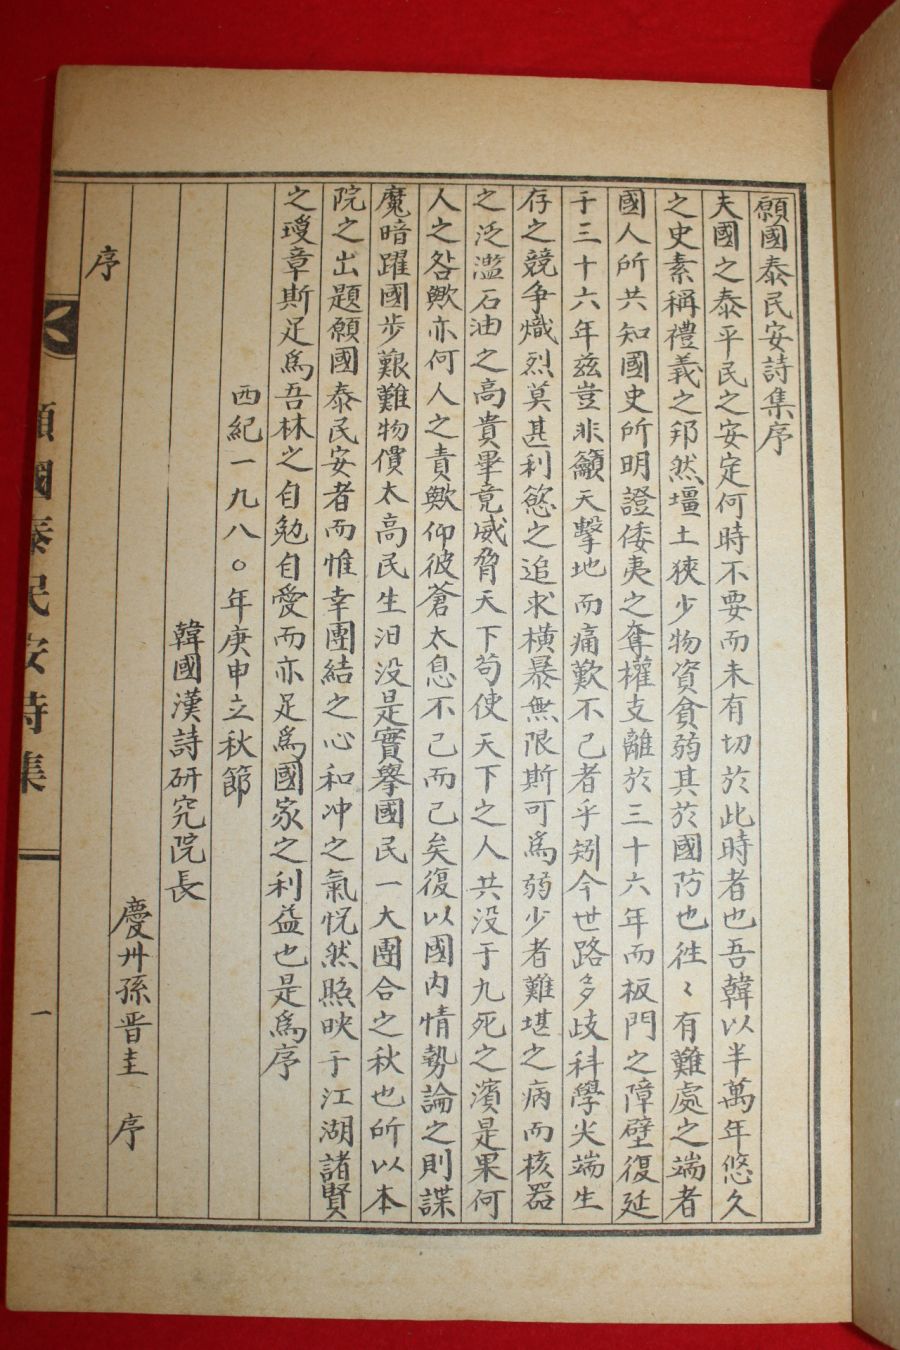 願國泰民安詩集序
夫國之泰平民之安定何時不要而未有切於此時者也吾韓以半萬年悠久
之史素稱禮義之邦然壃土狹少物資貧弱其於國防也徃〻有難處之端者
國人所共知國史所明證倭夷之奪權支離於三十六年而板門之障壁復延
于三十六年玆豈非籲天擊地而痛歎不已者乎矧今世路多歧科學尖端生
存之競争熾烈莫甚利慾之追求橫暴無限斯可爲弱少者難堪之病而核器
之泛濫石油之高貴畢竟威脅天下苟使天下之人共没于九死之濱是果何
人之咎歟亦何人之責歟仰彼蒼太息不已而已矣復以國内情勢論之則諜
魔暗躍國步艱難物價太高民生汩没是實擧國民一大團合之秋也所以本
院之出題願國泰民安者而惟幸團結之心和冲之氣怳然照映于江湖諸賢
之瓊章斯足爲吾林之自勉自愛而亦足爲國家之利益也是爲序
西紀一九八〇年庚申立秋節
韓國漢詩研究院長
慶州孫晋圭 序
序
願國泰民安詩集
一